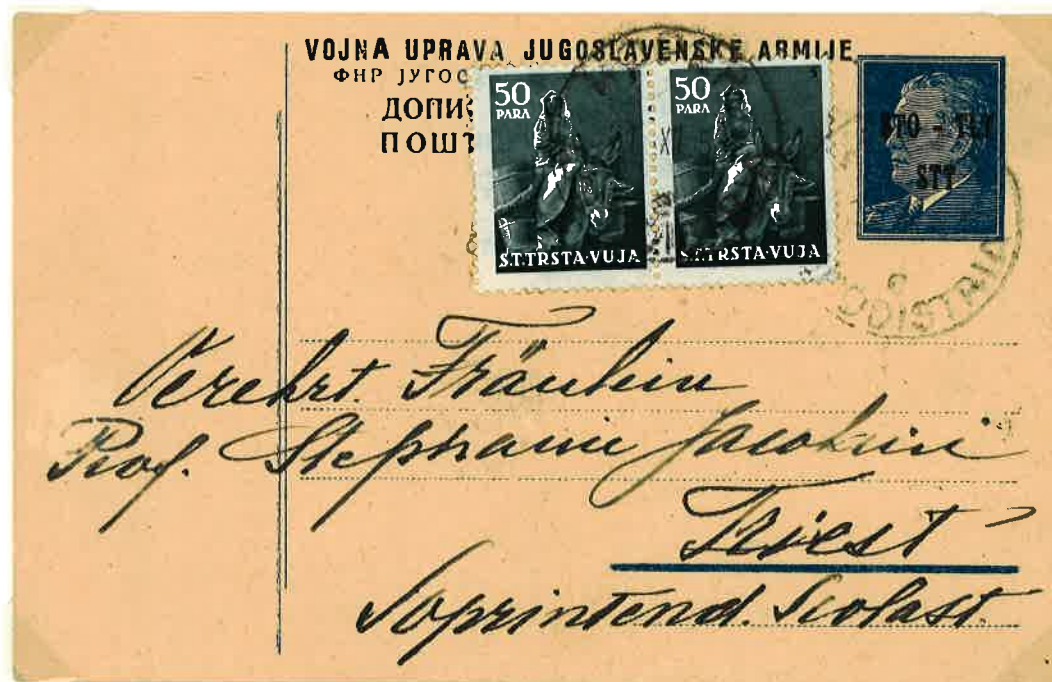 VOJNA UPRAVA JUGOSLAVENSKE ARMIJE
ФНР ЈУГОС
ДОПИС
ПОШТ
50
PARA
S.T.TRSTA·VUJA
50
PARA
S.T.TRSTA·VUJA
STO - TLT
STT
ODISTRIA
Verehrt. Fräulein
Prof. Stephanie
Triest
Soprintend. Scolast.